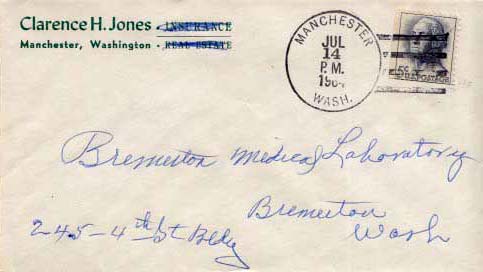 Clarence H. Jones - INSURANCE
Manchester, Washington - REAL ESTATE
MANCHESTER
JUL
14
P. M.
1964
WASH.
5c U.S. POSTAGE
Bremerton Medical Laboratory
245-4th St Bldg
Bremerton
Wash